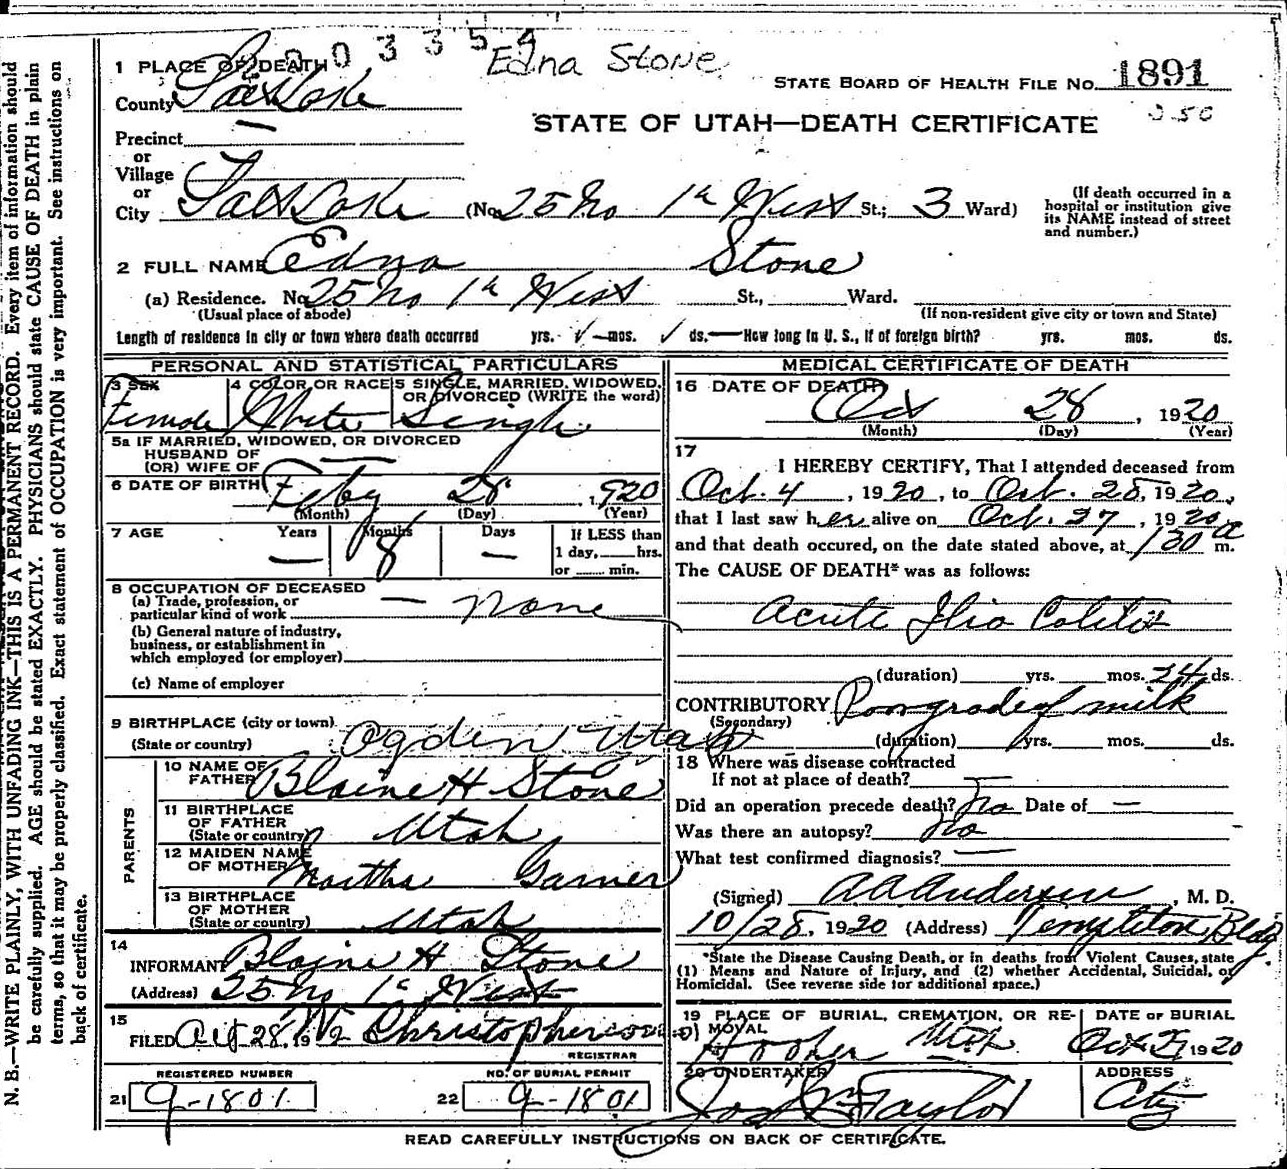 003354
Edna Stone
STATE BOARD OF HEALTH FILE NO. 1891
350
1 PLACE OF DEATH
County Salt Lake
STATE OF UTAH—DEATH CERTIFICATE
Precinct —
or
Village
or
City Salt Lake (No. 25 No 1st West St.; 3 Ward)
(If death occurred in a hospital or institution give its NAME instead of street and number.)
2 FULL NAME Edna Stone
(a) Residence. No. 25 No 1st West St., Ward.
(Usual place of abode) (If non-resident give city or town and State)
Length of residence in city or town where death occurred yrs. ✓ mos. ✓ ds. — How long in U. S., if of foreign birth? yrs. mos. ds.
PERSONAL AND STATISTICAL PARTICULARS
3 SEX Female
4 COLOR OR RACE White
5 SINGLE, MARRIED, WIDOWED, OR DIVORCED (WRITE the word) Single
5a IF MARRIED, WIDOWED, OR DIVORCED
HUSBAND OF
(OR) WIFE OF —
6 DATE OF BIRTH Feby 28, 1920
(Month) (Day) (Year)
7 AGE Years — Months 8 Days —
If LESS than
1 day, hrs.
or min.
8 OCCUPATION OF DECEASED
(a) Trade, profession, or
particular kind of work — none
(b) General nature of industry,
business, or establishment in
which employed (or employer)
(c) Name of employer
9 BIRTHPLACE (city or town)
(State or country) Ogden Utah
PARENTS
10 NAME OF
FATHER Blaine H Stone
11 BIRTHPLACE
OF FATHER
(State or country) Utah
12 MAIDEN NAME
OF MOTHER Martha Garner
13 BIRTHPLACE
OF MOTHER
(State or country) Utah
14
INFORMANT Blaine H Stone
(Address) 25 No 1st West
15
FILED 28, 19 Christopherson
REGISTRAR
REGISTERED NUMBER
21 9-1801
NO. OF BURIAL PERMIT
22 9-1801
MEDICAL CERTIFICATE OF DEATH
16 DATE OF DEATH
Oct 28 1920
(Month) (Day) (Year)
17
I HEREBY CERTIFY, That I attended deceased from
Oct. 4, 1920, to Oct. 28, 1920,
that I last saw her alive on Oct. 27, 1920
and that death occured, on the date stated above, at 130 a m.
The CAUSE OF DEATH* was as follows:
Acute Ilio Colitis
(duration) yrs. mos. 24 ds.
CONTRIBUTORY Poor grade of milk
(Secondary)
(duration) yrs. mos. ds.
18 Where was disease contracted
If not at place of death? —
Did an operation precede death? No Date of —
Was there an autopsy? No
What test confirmed diagnosis? —
(Signed) A.A. Anderson, M. D.
10/28, 1920 (Address) Templeton Bldg.
*State the Disease Causing Death, or in deaths from Violent Causes, state
(1) Means and Nature of Injury, and (2) whether Accidental, Suicidal, or
Homicidal. (See reverse side for additional space.)
19 PLACE OF BURIAL, CREMATION, OR REMOVAL
Hooper Utah
DATE OF BURIAL
Oct 29 1920
20 UNDERTAKER
Jos Taylor
ADDRESS
City
READ CAREFULLY INSTRUCTIONS ON BACK OF CERTIFICATE.
N. B.—WRITE PLAINLY, WITH UNFADING INK—THIS IS A PERMANENT RECORD. Every item of information should
be carefully supplied. AGE should be stated EXACTLY. PHYSICIANS should state CAUSE OF DEATH in plain
terms, so that it may be properly classified. Exact statement of OCCUPATION is very important. See instructions on
back of certificate.